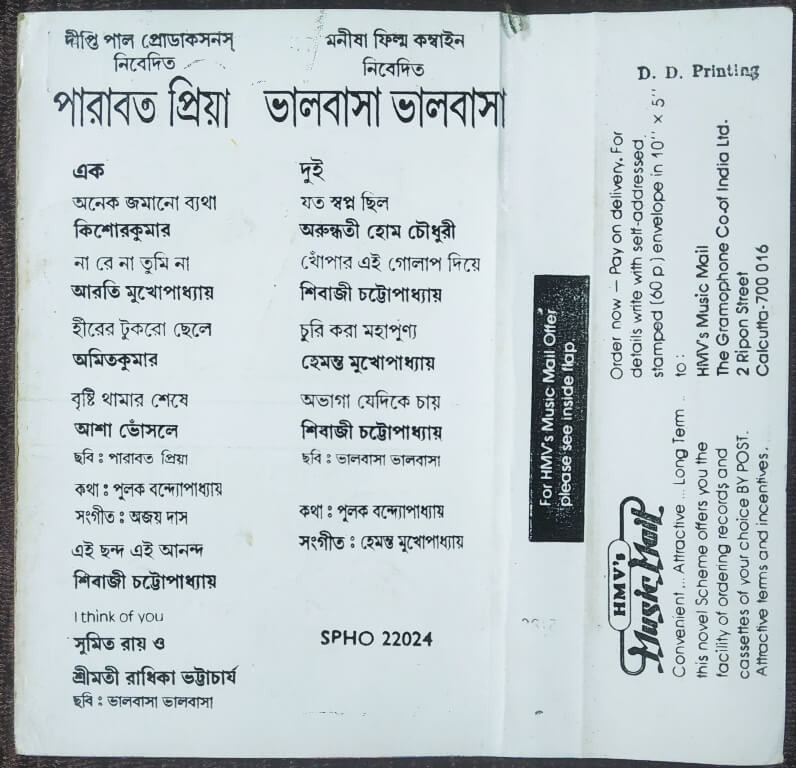 দীপ্তি পাল প্রোডাকসনস্
নিবেদিত
পারাবত প্রিয়া
এক
অনেক জমানো ব্যথা
কিশোরকুমার
না রে না তুমি না
আরতি মুখোপাধ্যায়
হীরের টুকরো ছেলে
অমিতকুমার
বৃষ্টি থামার শেষে
আশা ভোঁসলে
ছবি : পারাবত প্রিয়া
কথা : পুলক বন্দ্যোপাধ্যায়
সংগীত : অজয় দাস
এই ছন্দ এই আনন্দ
শিবাজী চট্টোপাধ্যায়
I think of you
সুমিত রায় ও
শ্রীমতী রাধিকা ভট্টাচার্য
ছবি : ভালবাসা ভালবাসা
মনীষা ফিল্ম কম্বাইন
নিবেদিত
ভালবাসা ভালবাসা
দুই
যত স্বপ্ন ছিল
অরুন্ধতী হোম চৌধুরী
খোঁপার এই গোলাপ দিয়ে
শিবাজী চট্টোপাধ্যায়
চুরি করা মহাপুণ্য
হেমন্ত মুখোপাধ্যায়
অভাগা যেদিকে চায়
শিবাজী চট্টোপাধ্যায়
ছবি : ভালবাসা ভালবাসা
কথা : পুলক বন্দ্যোপাধ্যায়
সংগীত : হেমন্ত মুখোপাধ্যায়
SPHO 22024
For HMV's Music Mail Offer
please see inside flap.
D. D. Printing
HMV's
Music Mail
Convenient ... Attractive ... Long Term ..
this novel Scheme offers you the
facility of ordering records and
cassettes of your choice BY POST.
Attractive terms and incentives.
Order now – Pay on delivery. For
details write with self-addressed
stamped (60 p.) envelope in 10" x 5"
to :
HMV's Music Mail
The Gramophone Co of India Ltd.
2 Ripon Street
Calcutta-700 016